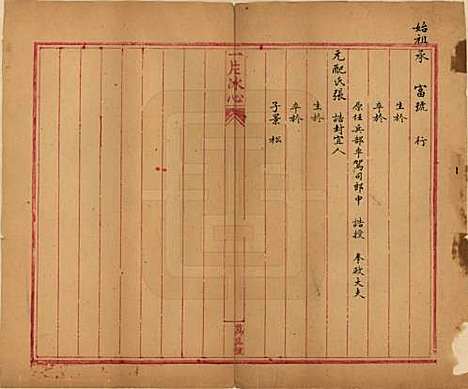 始祖承 富號 行
生於
卒於
原任兵部車駕司郎中 誥授 奉政大夫
元配氏張 誥封宜人
生於
卒於
子景 松
一片冰心